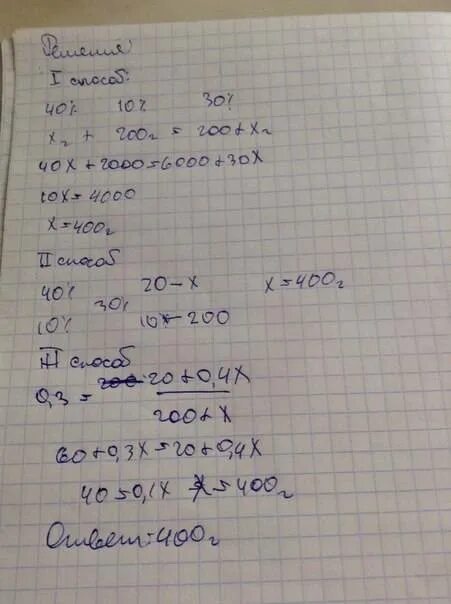 Решение:
I способ:
40% 10% 30%
x г + 200г = 200+x г
40x+2000=6000+30x
10x=4000
x=400г
II способ
40% 20-x x=400г
30%
10% 10-200
III способ
0,3 = 20+0,4x
200+x
60+0,3x=20+0,4x
40=0,1x x=400г
Ответ:400г